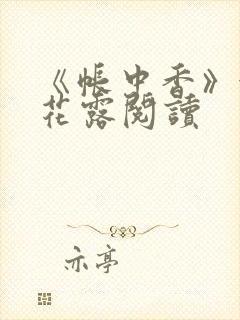 《帳中香》
花露閱讀
亦亭